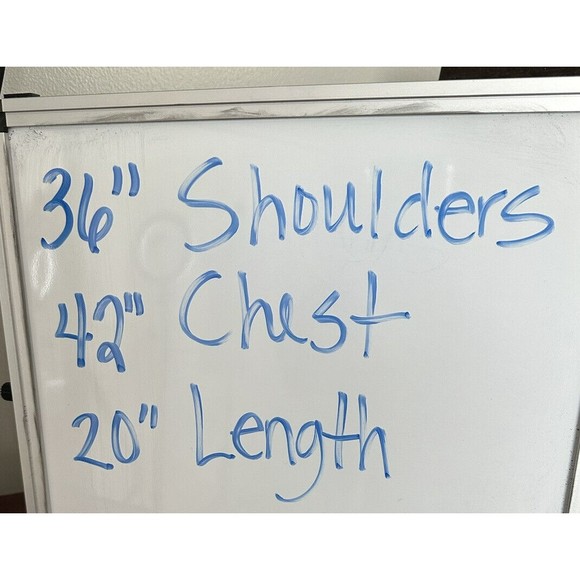 36" Shoulders
42" Chest
20" Length